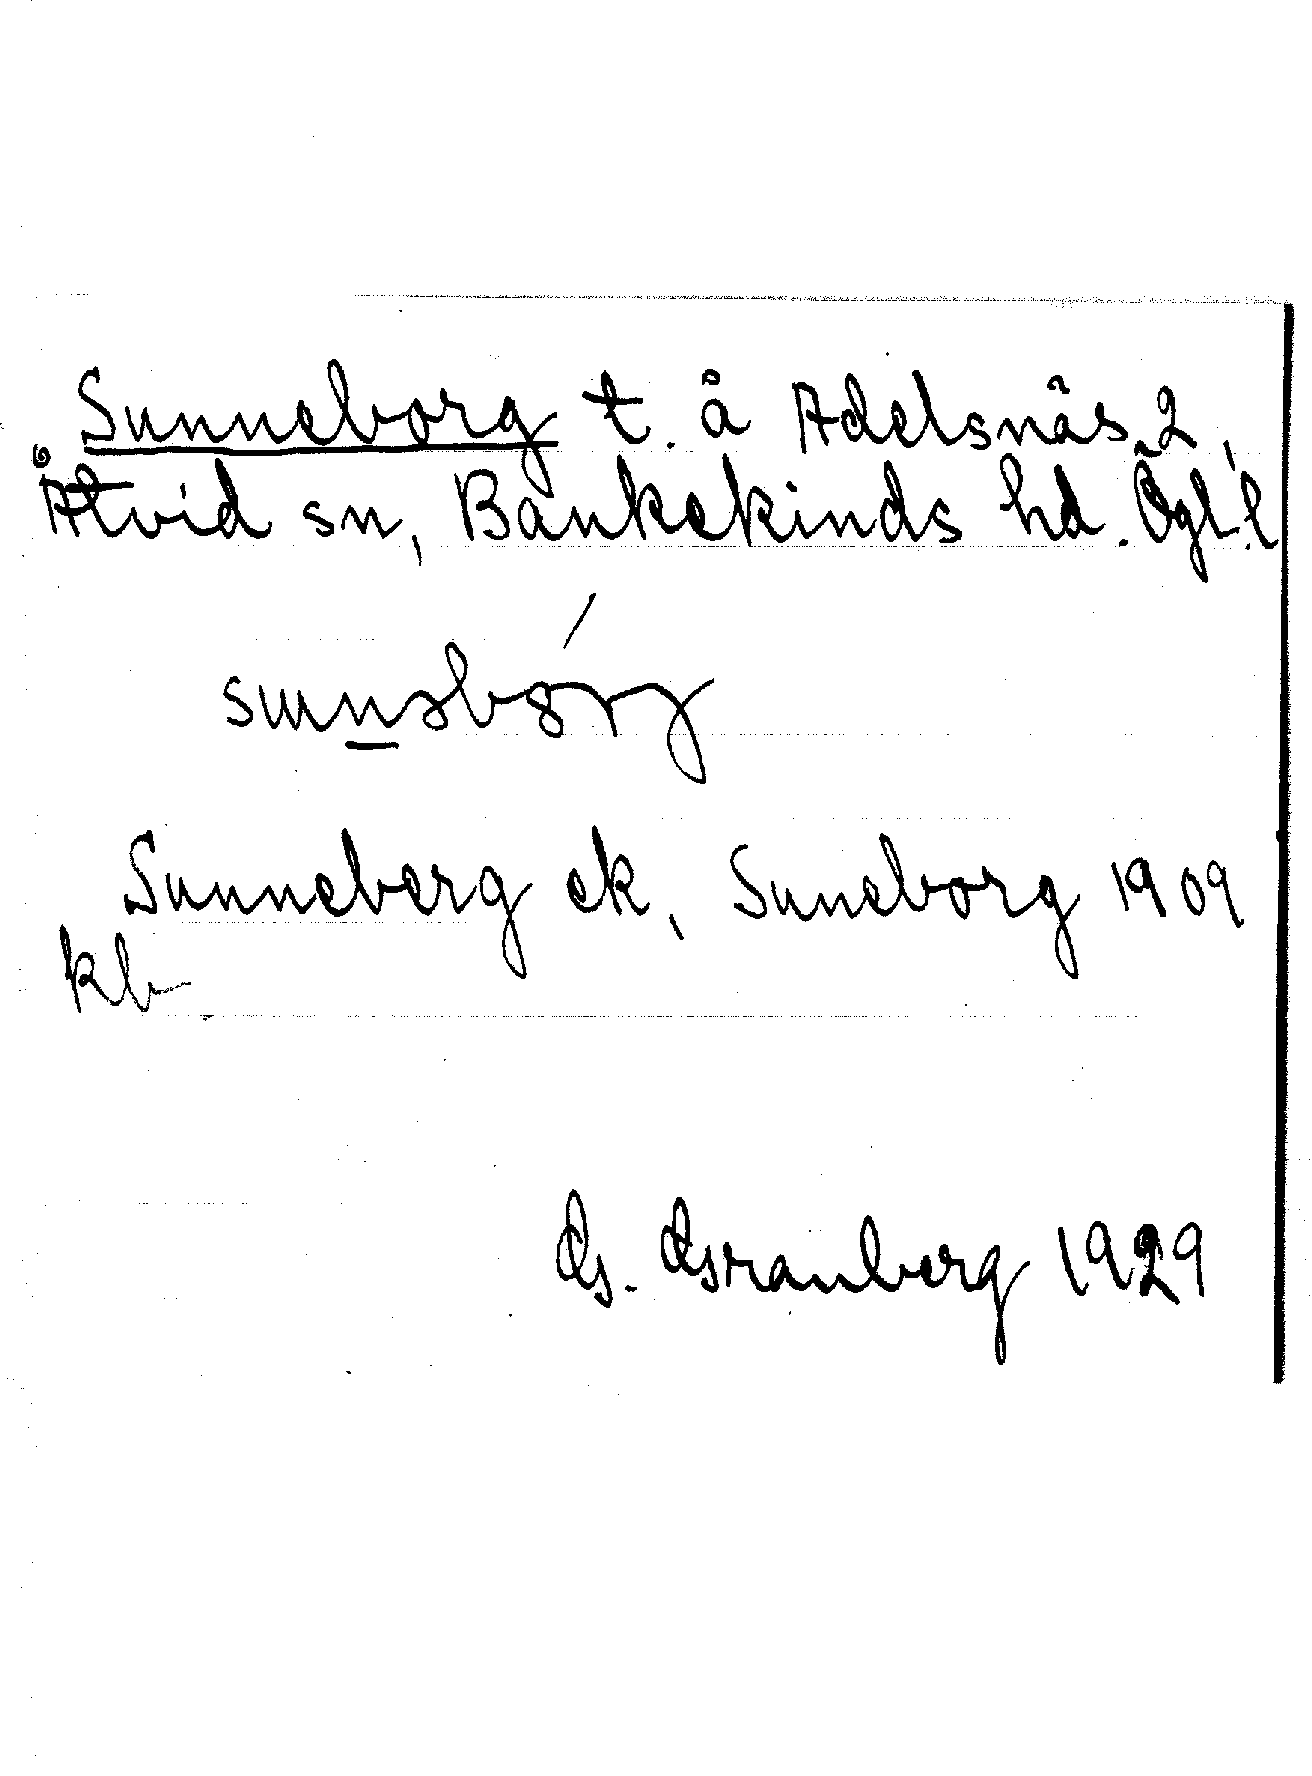 Sunneborg t. å Adelsnäs 2,
Åtvid sn, Bankekinds hd. Ögl. l
Sunneberg ek, Suneborg 1909
kb
G. Granberg 1929